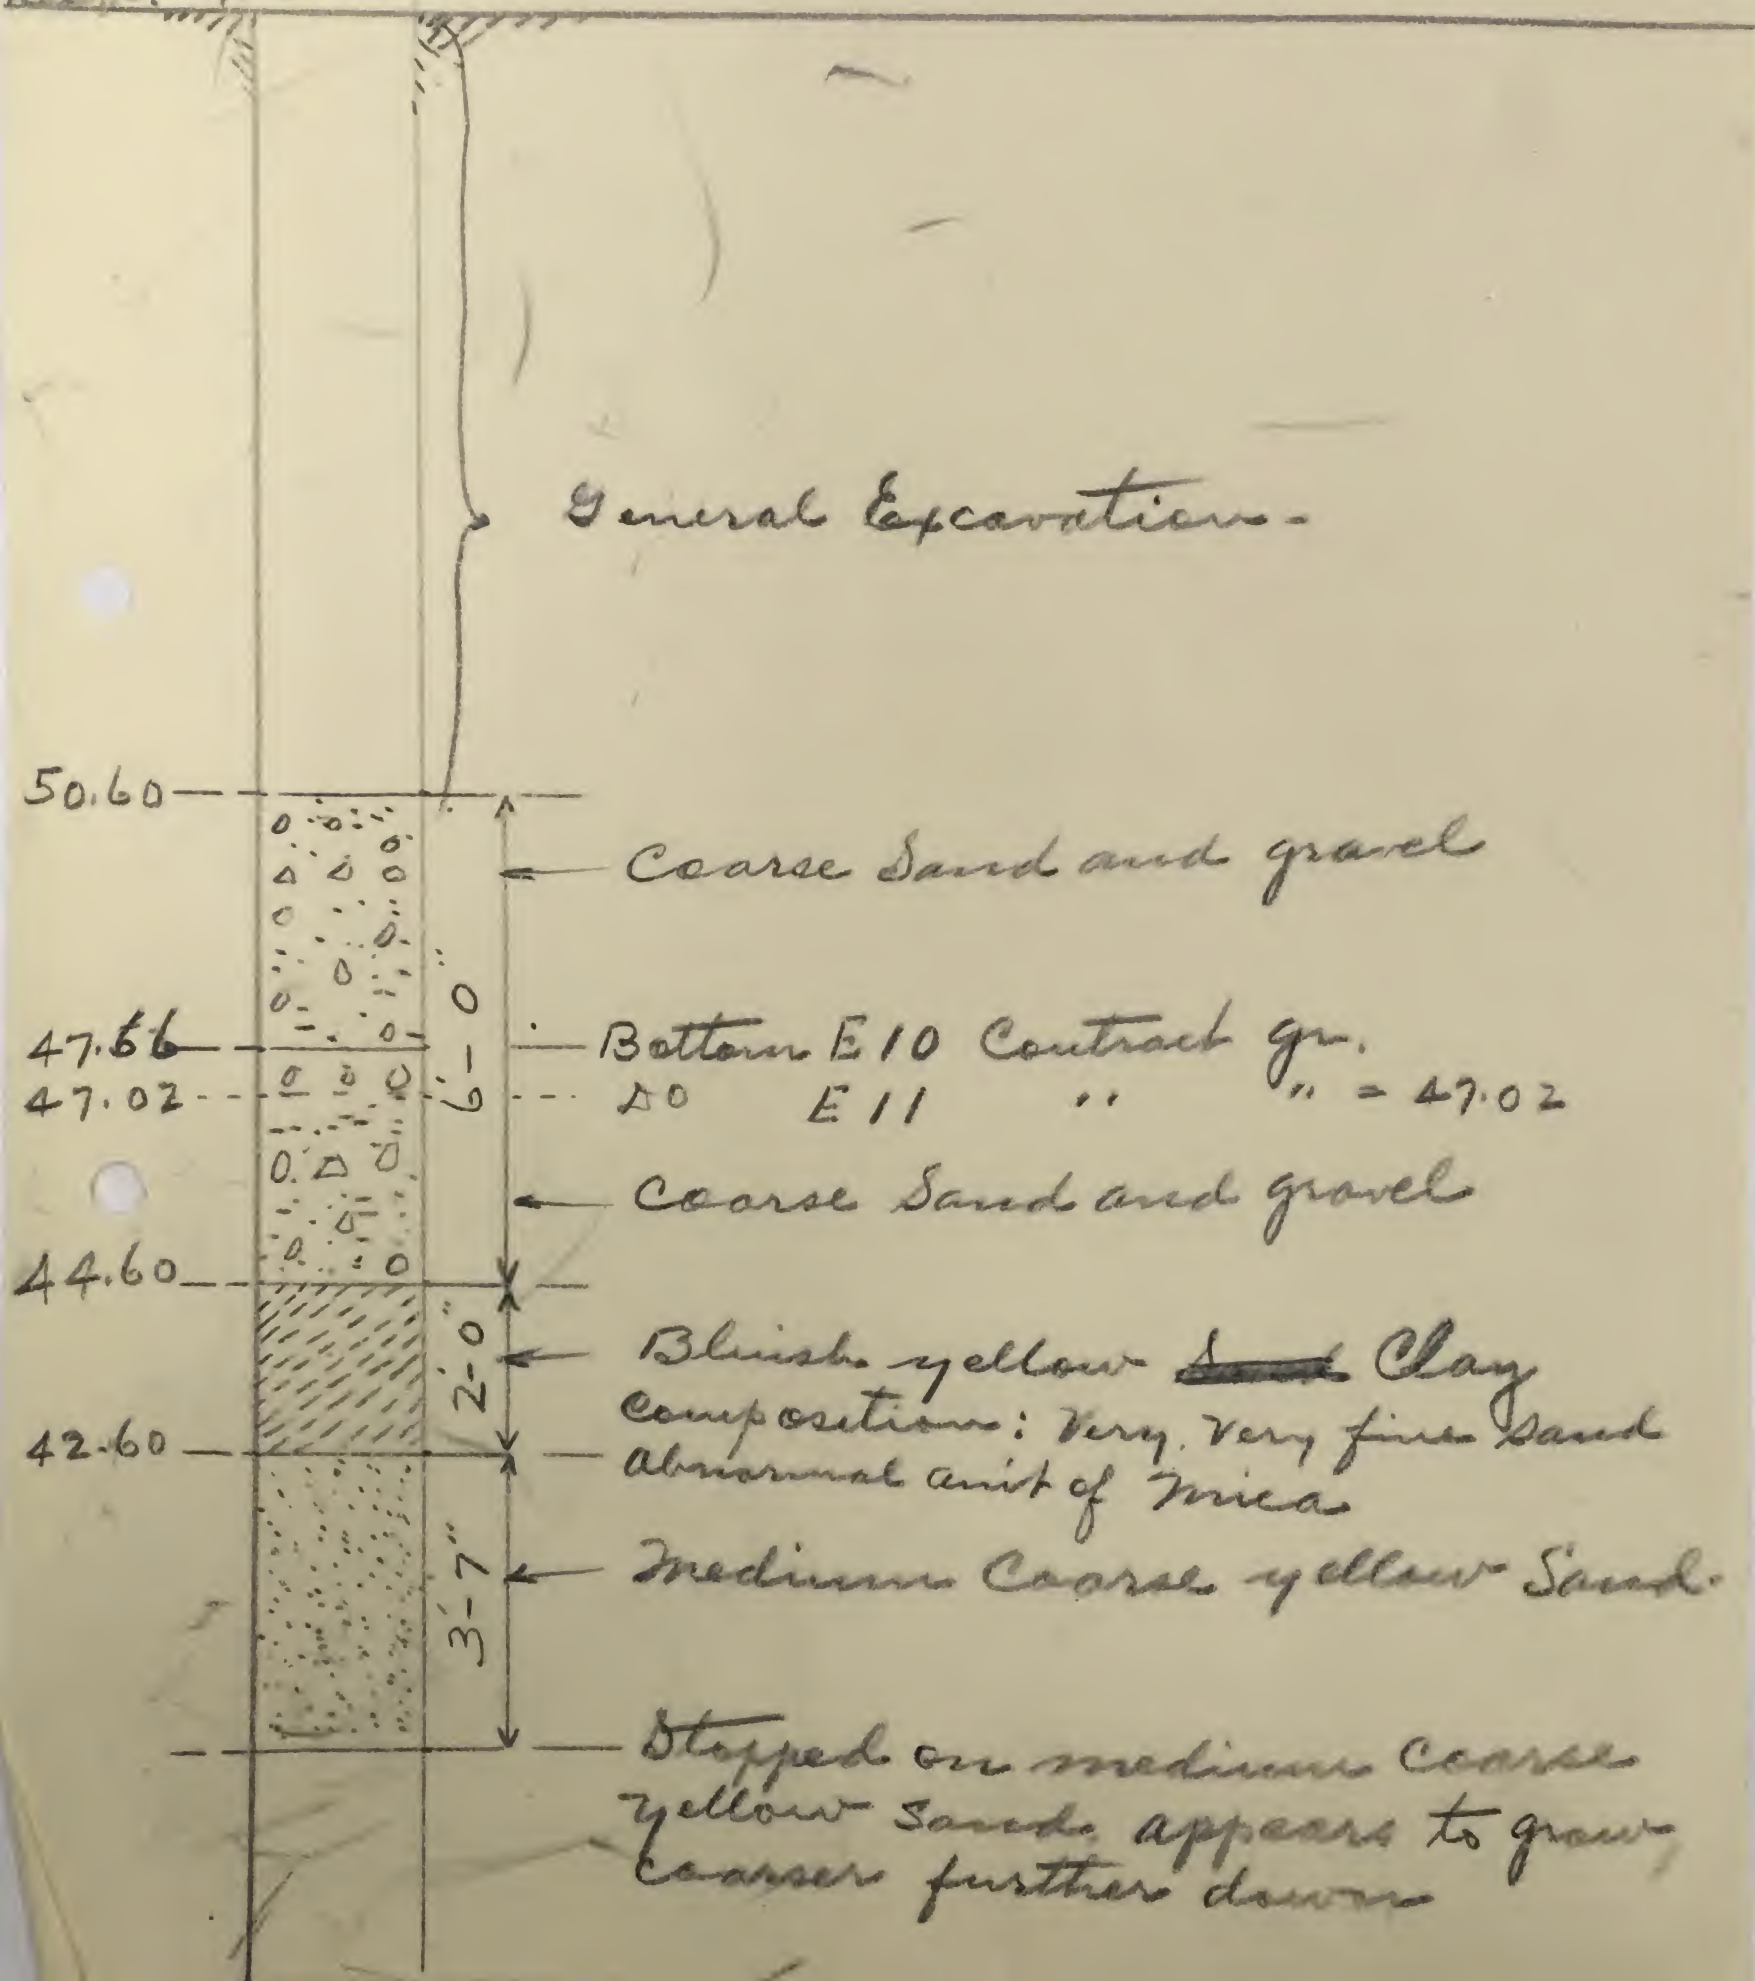 General Excavation.
50.60
Coarse Sand and gravel
6'-0"
47.66
Bottom E10 Contract gr.
47.02
DO E11 " " = 47.02
Coarse Sand and gravel
44.60
2'-0"
Bluish yellow Clay
Composition: Very, Very fine sand
42.60
Abnormal amt of Mica
3'-7"
Medium Coarse yellow Sand.
Stopped on medium coarse
yellow sand, appears to grow
coarser further down